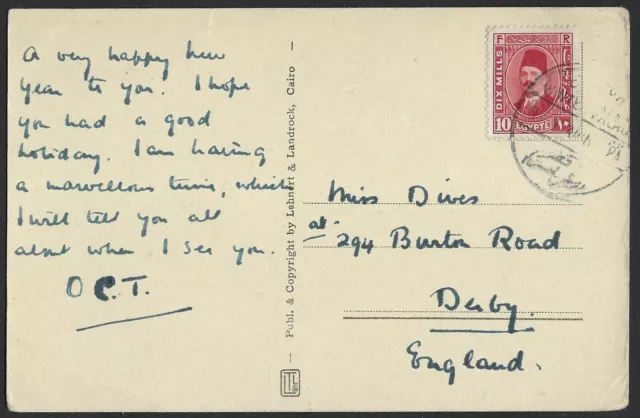 A very happy new
Year to you. I hope
you had a good
holiday. I am having
a marvellous time, which
I will tell you all
about when I see you.
O.C.T.
Publ. & Copyright by Lehnert & Landrock, Cairo
F R
DIX MILLS
10 EGYPTE ١٠
PALACE
Miss Dives
at
294 Burton Road
Derby.
England.